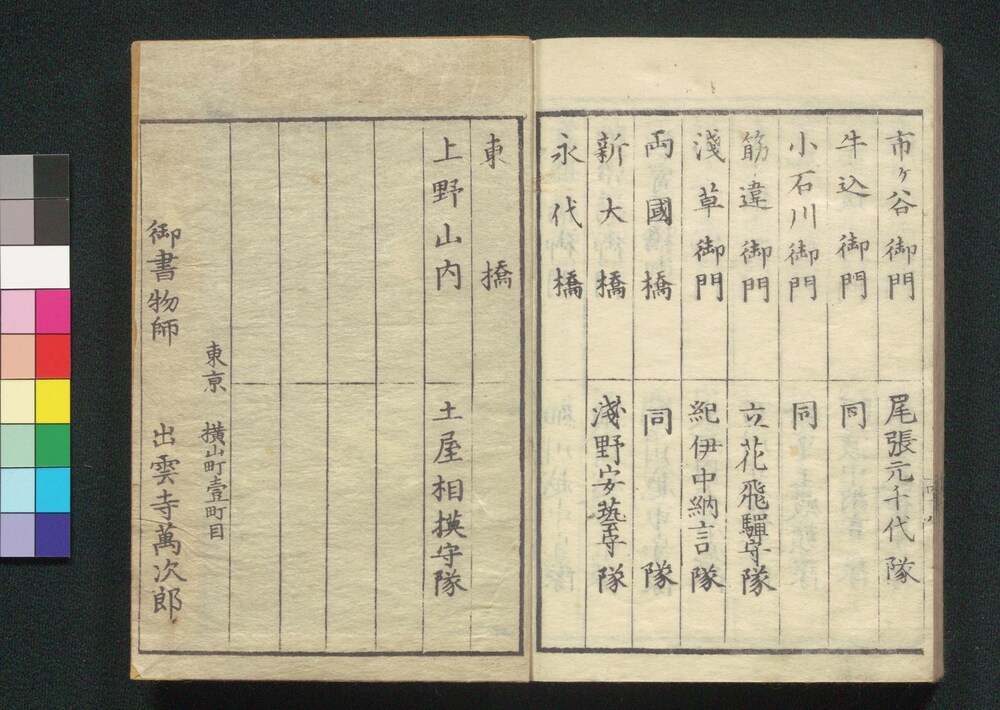 市ヶ谷御門 尾張元千代隊
牛込御門 同
小石川御門 同
筋違御門 立花飛驒守隊
淺草御門 紀伊中納言隊
両國橋 同隊
新大橋 淺野安藝守隊
永代橋
東橋
上野山内 土屋相摸守隊
東亰 横山町壹町目
御書物師 出雲寺萬次郎